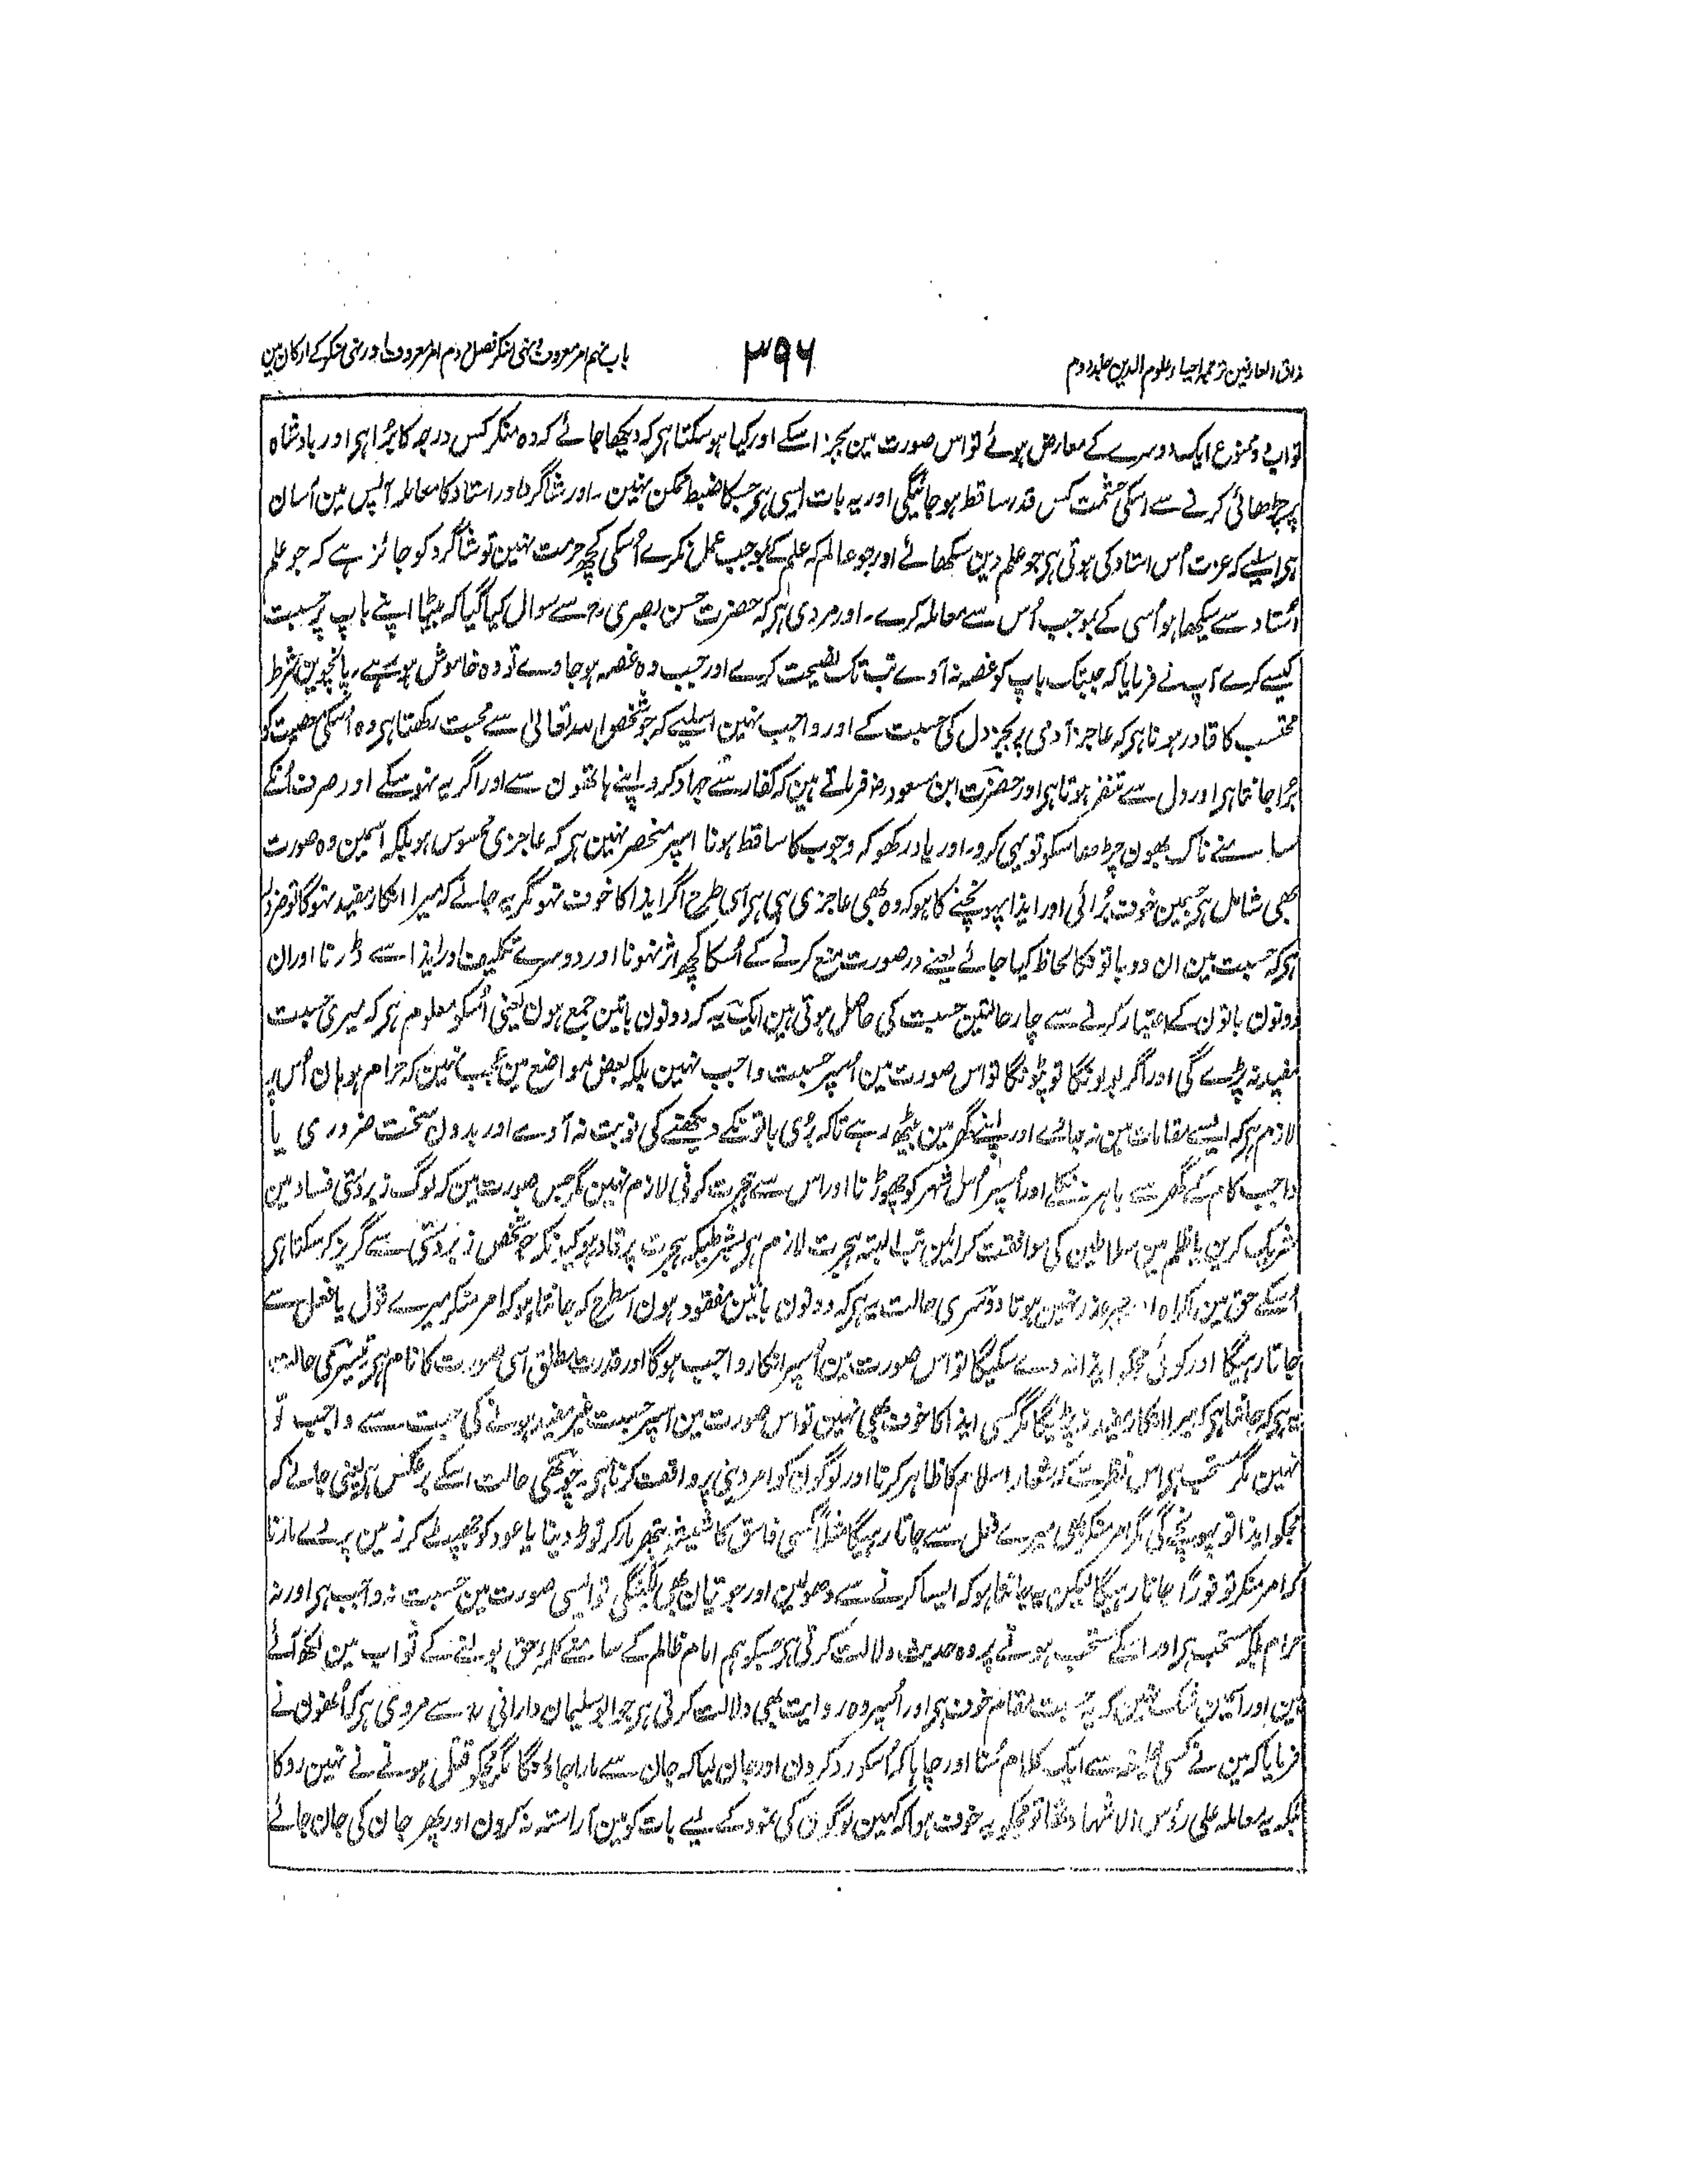 مذاق العارفین ترجمہ احیاء علوم الدین جلد دوم
۳۹۶
باب نہم امر معروف و نہی منکر فصل دوم امر معروف اور نہی منکر کے ارکان مین
تو اب دو ممنوع ایک دوسرے کے معارض ہوئے تو اس صورت مین بجز اسکے اور کیا ہوسکتا ہی کہ دیکھا جائے کہ وہ منکر کس درجہ کا بُرا ہی اور بادشاہ
پر چڑھائی کرنے سے اسکی حشمت کس قدر ساقط ہوجائیگی اور یہ بات ایسی ہی جسکا ضبط ممکن نہین ۔ اور شاگرد اور استاد کا معاملہ آپس مین آسان
ہی اسلیے کہ عزت اُس استاد کی ہوتی ہی جو علم دین سکھائے اور جو عالم کہ علم کے بموجب عمل نکرے اُسکی کچھ حرمت نہین تو شاگرد کو جائز ہے کہ جو علم
اُستاد سے سیکھا ہو اُسی کے بموجب اُس سے معاملہ کرے ۔ اور مروی ہی کہ حضرت حسن بصری رح سے سوال کیا گیا کہ بیٹا اپنے باپ پر حسبت
کیسے کرے آپ نے فرمایا کہ جبتک باپ کو غصہ نہ آوے تب تک نصیحت کرے اور جب وہ غصہ ہوجاوے تو وہ خاموش ہو رہے ۔ پانچوین شرط
محتسب کا قادر ہونا ہی کہ عاجز آدمی پر بجز دل کی حسبت کے اور واجب نہین اسلیے کہ جو شخص اللہ تعالیٰ سے محبت رکھتا ہی وہ اُسکی معصیت کو
بُرا جانتا ہی اور دل سے متنفر ہوتا ہی اور حضرت ابن مسعود رض فرماتے ہین کہ کفار سے جہاد کرو اپنے ہاتھون سے اور اگر یہ نہوسکے اور صرف اُنکے
سامنے ناک بھون چڑھا سکو تو یہی کرو ۔ اور یاد رکھو کہ وجوب کا ساقط ہونا اسپر منحصر نہین ہی کہ عاجزی محسوس ہو بلکہ اسمین وہ صورت
بھی شامل ہی جسمین خوف بُرائی اور ایذا پہونچنے کا ہو کہ وہ بھی عاجزی ہی ہی اسی طرح اگر ایذا کا خوف نہو مگر یہ جانے کہ میرا انکار مفید نہوگا تو ضرور
ہی کہ حسبت مین ان دو باتونکا لحاظ کیا جائے یعنے درصورت منع کرنے کے اُسکا کچھ اثر نہونا اور دوسرے تکلیف اور ایذا سے ڈرنا اور ان
دونون باتون کے اعتبار کرنے سے چار حالتین حسبت کی حاصل ہوتی ہین ایک یہ کہ دونون باتین جمع ہون یعنی اُسکو معلوم ہی کہ میری حسبت
مفید نہ پڑے گی اور اگر بولونگا تو پٹونگا تو اس صورت مین اُسپر حسبت واجب نہین بلکہ بعض مواضع مین عجب نہین کہ حرام ہو ہان اُس پر
لازم ہی کہ ایسے مقامات مین نہ جائے اور اپنے گھر مین بیٹھ رہے تاکہ بُری باتونکے دیکھنے کی نوبت نہ آوے اور بدون سخت ضروری یا
واجب کام کے گھر سے باہر نہ نکلے اور اُسپر اُس شہر کو چھوڑنا اور اس سے ہجرت کرنی لازم نہین مگر جس صورت مین کہ لوگ زبردستی فساد مین
شریک کرین یا ظلم مین سلاطین کی موافقت کراوین تب البتہ ہجرت لازم ہی بشرطیکہ ہجرت پر قادر ہو کیونکہ جو شخص زبردستی سے گریز کرسکتا ہی
اُسکے حق مین اکراہ اور جبر عذر نہین ہوتا دوسری حالت یہ ہی کہ دونون باتین مفقود ہون اسطرح کہ جانتا ہو کہ امر منکر میرے قول یا فعل سے
جاتا رہیگا اور کوئی مجھکو ایذا نہ دے سکیگا تو اس صورت مین اُسپر انکار واجب ہوگا اور قدرت مطلق اسی صورت کا نام ہی تیسری حالت
یہ ہی کہ جانتا ہی کہ میرا انکار مفید نہ پڑیگا مگر کسی ایذا کا خوف بھی نہین تو اس صورت مین اسپر حسبت غیر مفید ہونے کی جہت سے واجب تو
نہین مگر مستحب ہی اس نظر سے کہ شعار اسلام کا ظاہر کرنا اور لوگون کو امر دینی پر واقف کرنا ہی ۔ چوتھی حالت اسکے برعکس ہی یعنی جانے کہ
مجکو ایذا تو پہونچے گی مگر امر منکر بھی میرے فعل سے جاتا رہیگا مثلاً کسی فاسق کا شیشہ پتھر مار کر توڑ دینا یا عود کو جھپٹ کر زمین پر دے مارنا
کہ امر منکر تو فوراً جاتا رہیگا لیکن یہ جانتا ہو کہ ایسا کرنے سے دھولین اور جوتیان بھی لگینگی تو ایسی صورت مین حسبت نہ واجب ہی اور نہ
حرام بلکہ مستحب ہی اور اسکے مستحب ہونے پر وہ حدیث دلالت کرتی ہی جسکو ہم امام ظالم کے سامنے کلمہ حق بولنے کے ثواب مین لکھ آئے
ہین اور اسمین شک نہین کہ یہ حسبت مقام خوف ہی اور اُسپر وہ روایت بھی دلالت کرتی ہی جو ابوسلیمان دارانی رح سے مروی ہی کہ اُنھون نے
فرمایا کہ مین نے کسی خلیفہ سے ایک کلام سُنا اور چاہا کہ اُسکو رد کرون اور جان لیا کہ جان سے مارا جاؤنگا مگر مجکو قتل ہونے نے نہین روکا
بلکہ یہ معاملہ علی رؤس الاشہاد تھا تو مجکو یہ خوف ہوا کہ کہین لوگون کی نمود کے لیے بات کو مین آراستہ نہ کرون اور پھر جان کی جان جائے